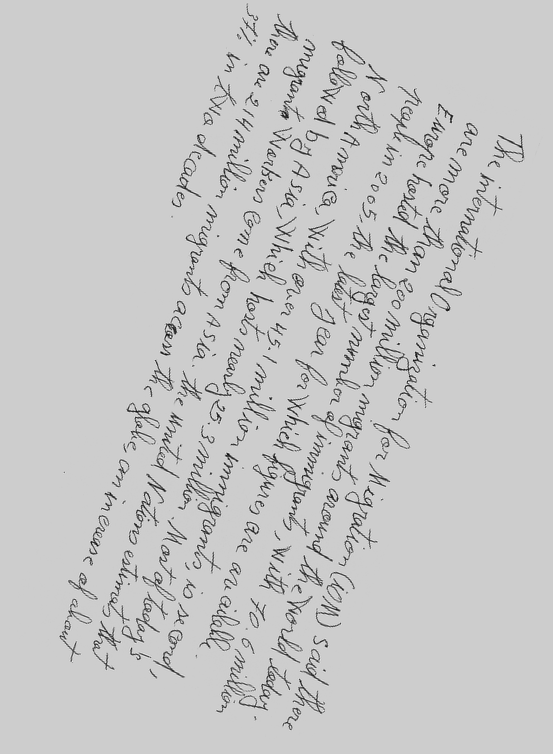 The international Organization for Migration (IOM) said there
are more than 200 million migrants around the world today.
Europe hosted the largest number of immigrants, with 70.6 million
people in 2005, the last year for which figures are available.
North America, with over 45.1 million immigrants, is second,
followed by Asia, which hosts nearly 25.3 million. Most of today's
migrant workers come from Asia. the United Nations estimates that
there are 214 million migrants across the globe, an increase of about
37% in two decades.